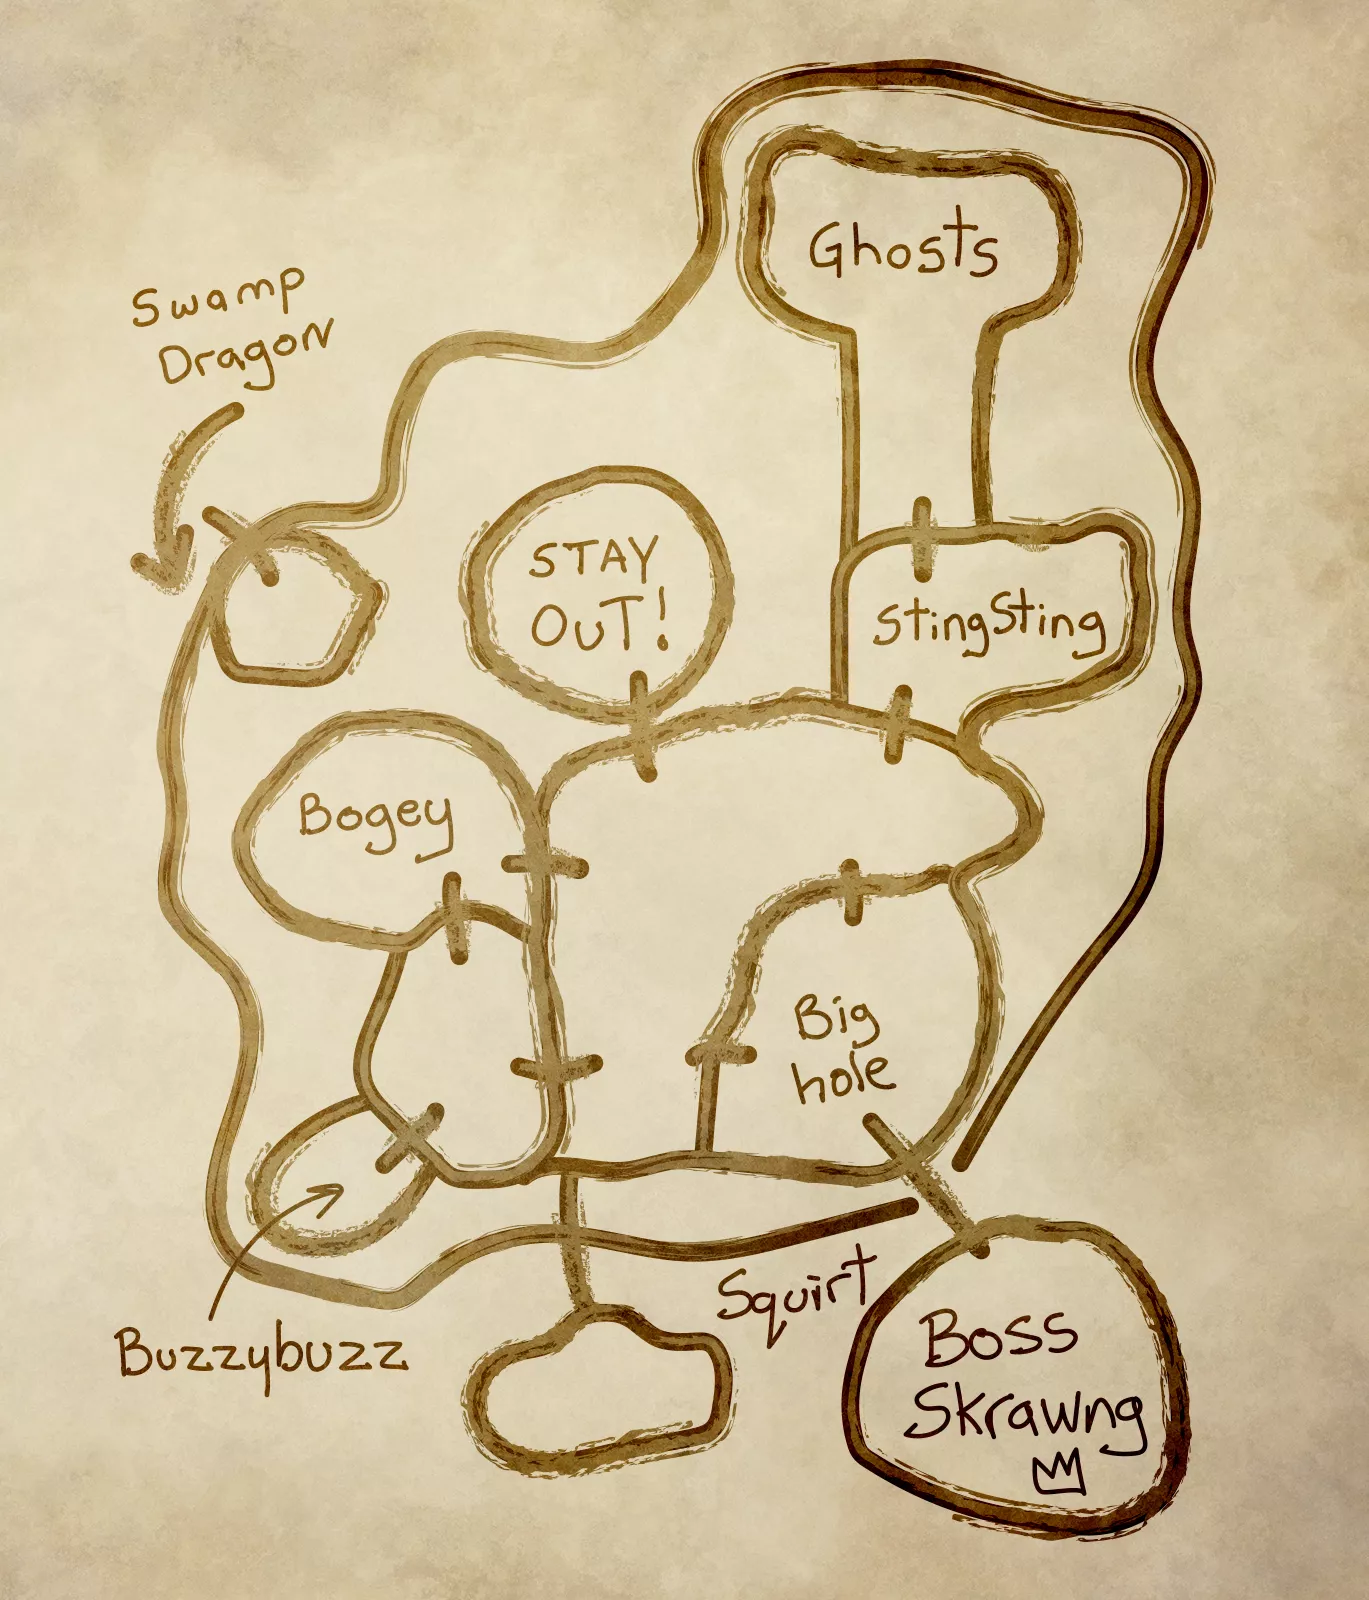 Ghosts
Swamp
Dragon
STAY
OUT!
StingSting
Bogey
Big
hole
Squirt
Buzzybuzz
Boss
Skrawng